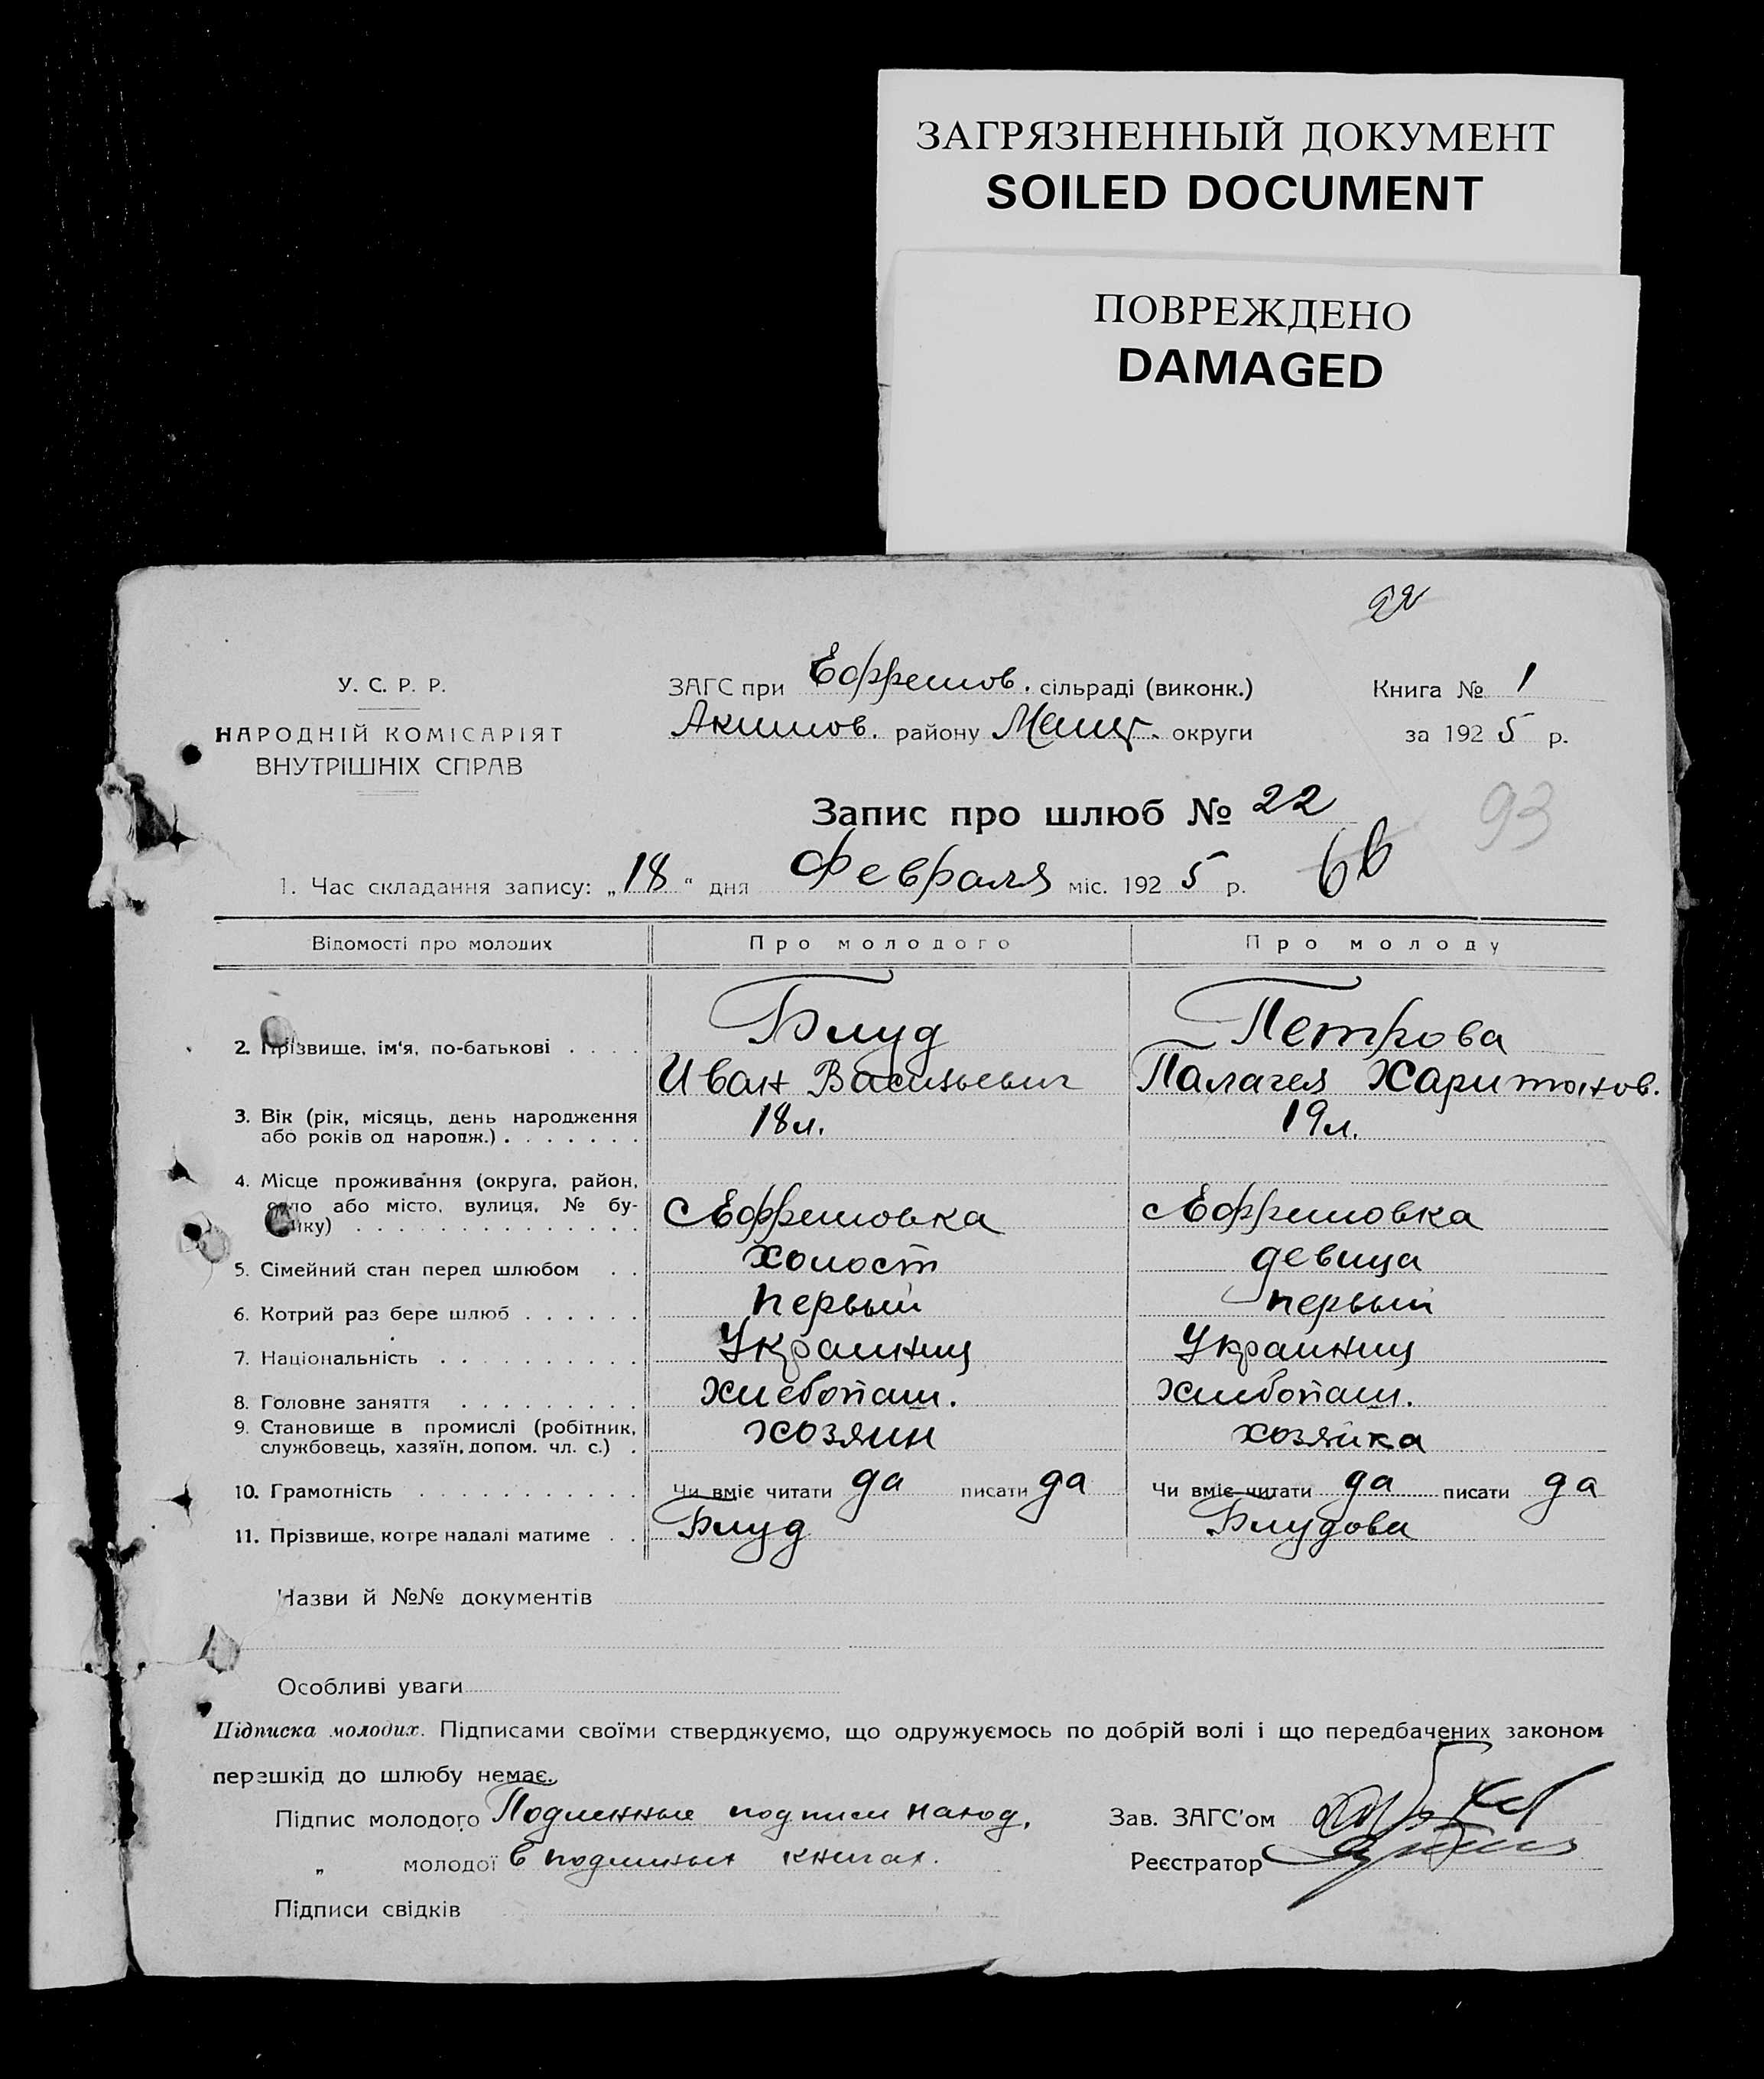 ЗАГРЯЗНЕННЫЙ ДОКУМЕНТ
SOILED DOCUMENT
ПОВРЕЖДЕНО
DAMAGED
22
У. С. Р. Р.
НАРОДНІЙ КОМІСАРІЯТ
ВНУТРІШНІХ СПРАВ
ЗАГС при Ефремов. сільраді (виконк.)
Акимов. району Мелит. округи
Книга № 1
за 1925 р.
Запис про шлюб № 22
93
1. Час складання запису: „18“ дня Февраля міс. 1925 р.
Відомості про молодих Про молодого Про молоду
2. Прізвище, ім'я, по-батькові . . . . Блуд Петрова
Иван Васильевич Палагея Харитонов.
3. Вік (рік, місяць, день народження 18 л. 19 л.
або років од народж.) . . . . . . .
4. Місце проживання (округа, район,
село або місто, вулиця, № бу-
динку) . . . . . . . . . . . . . . Ефремовка Ефремовка
5. Сімейний стан перед шлюбом . . холост девица
6. Котрий раз бере шлюб . . . . . . первый первый
7. Національність . . . . . . . . . . Украинец Украинец
8. Головне заняття . . . . . . . . . Хлебопаш. Хлебопаш.
9. Становище в промислі (робітник, хозяин хозяйка
службовець, хазяїн, допом. чл. с.) .
10. Грамотність . . . . . . . . . . . Чи вміє читати да писати да Чи вміє читати да писати да
11. Прізвище, котре надалі матиме . . Блуд Блудова
Назви й №№ документів
Особливі уваги
Підписка молодих. Підписами своїми стверджуємо, що одружуємось по добрій волі і що передбачених законом
перешкід до шлюбу немає.
Підпис молодого Подлинные подписи наход. Зав. ЗАГС'ом
„ молодої в подлинных книгах. Реєстратор
Підписи свідків